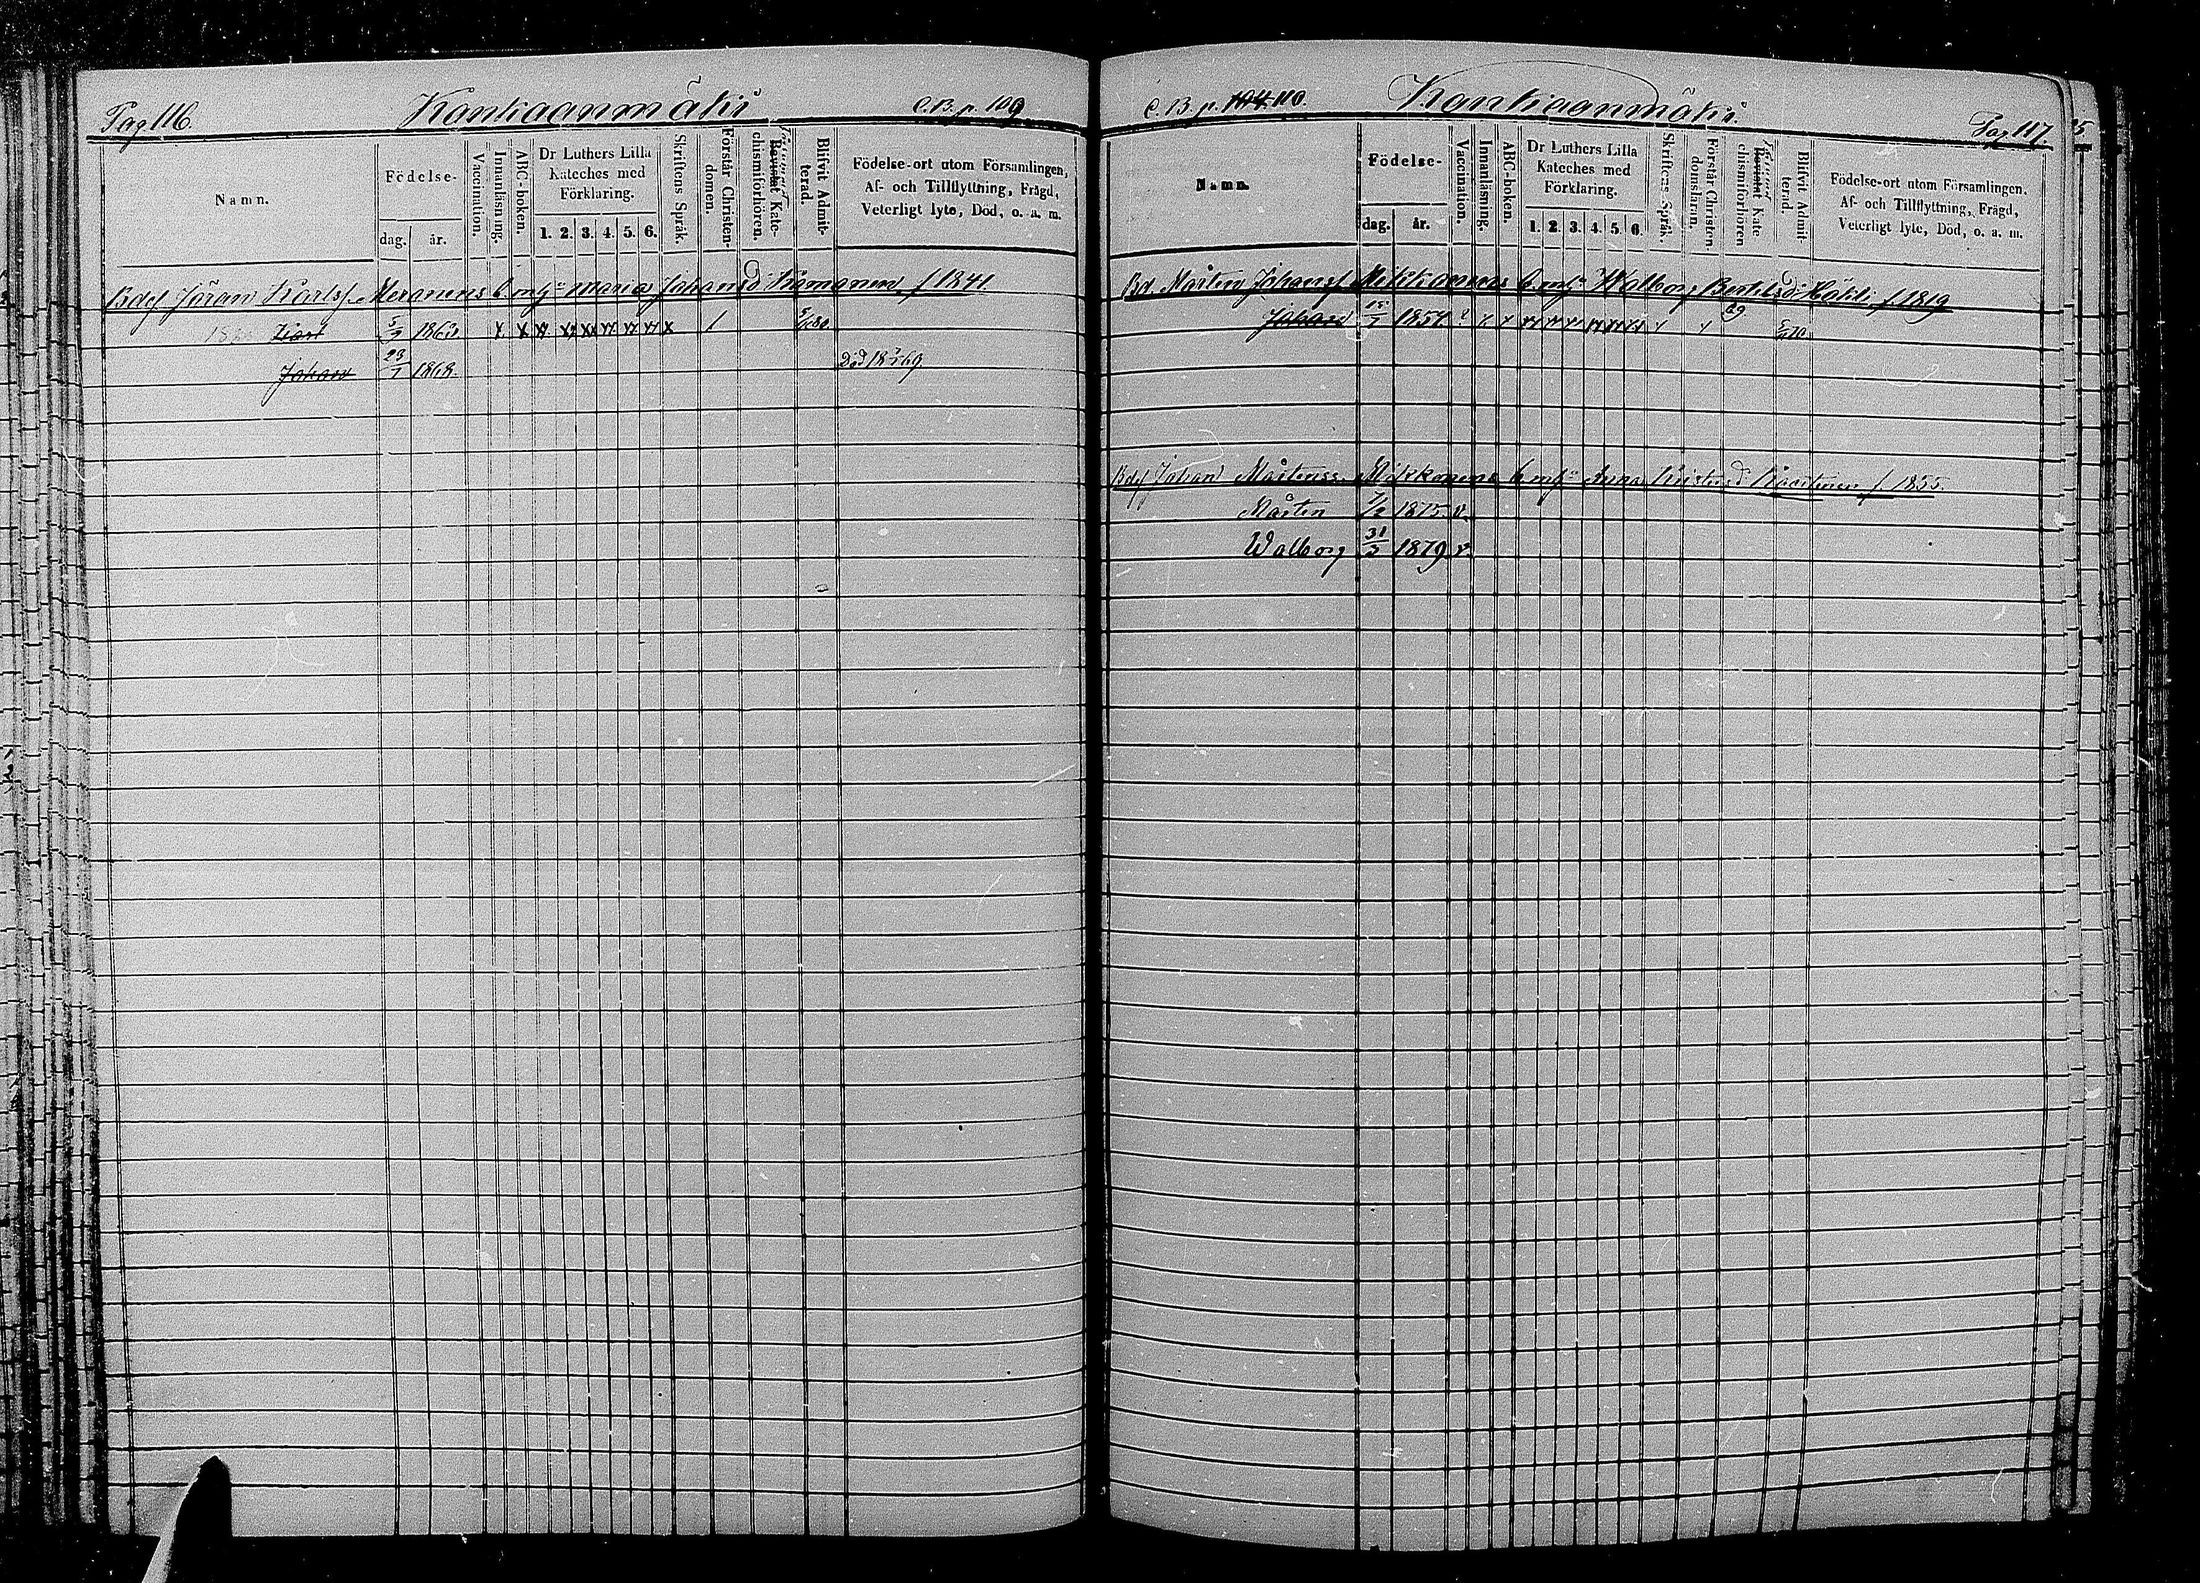 Pag 116.
Kankaanmäki
C.B. p. 109
Namn.
Födelse-
dag.
år.
Vaccination.
Innanläsning.
ABC-boken.
Dr Luthers Lilla
Kateches med
Förklaring.
1. 2. 3. 4. 5. 6.
Skriftens Språk.
Förstår Christen-
domen.
Bevistat Kate-
chismiförhören.
Blifvit Admit-
terad.
Födelse-ort utom Församlingen,
Af- och Tillflyttning, Frägd,
Veterligt lyte, Död, o. a. m.
Maria Johansd f 1841.
Johan 23/1 1868.
C.B. p. 104. 110.
Kankaanmäki.
Pag 117.
Namn.
Födelse-
dag.
år.
Vaccination.
Innanläsning.
ABC-boken.
Dr Luthers Lilla
Kateches med
Förklaring.
1. 2. 3. 4. 5. 6.
Skriftens Språk.
Förstår Christen-
domslärn.
Bevistat Kate
chismiförhören
Blifvit Admit-
terad.
Födelse-ort utom Församlingen.
Af- och Tillflyttning, Frägd,
Veterligt lyte, Död, o. a. m.
Bd. Mårten Johansf Mikkonens b. m. h. Walborg Bertilsd f 1819
Johan 1854
Johan Mårtenss. Mikkonens b. m. h. Anna f 1855.
Mårten 1875. v.
Walborg 31/3 1879 v.